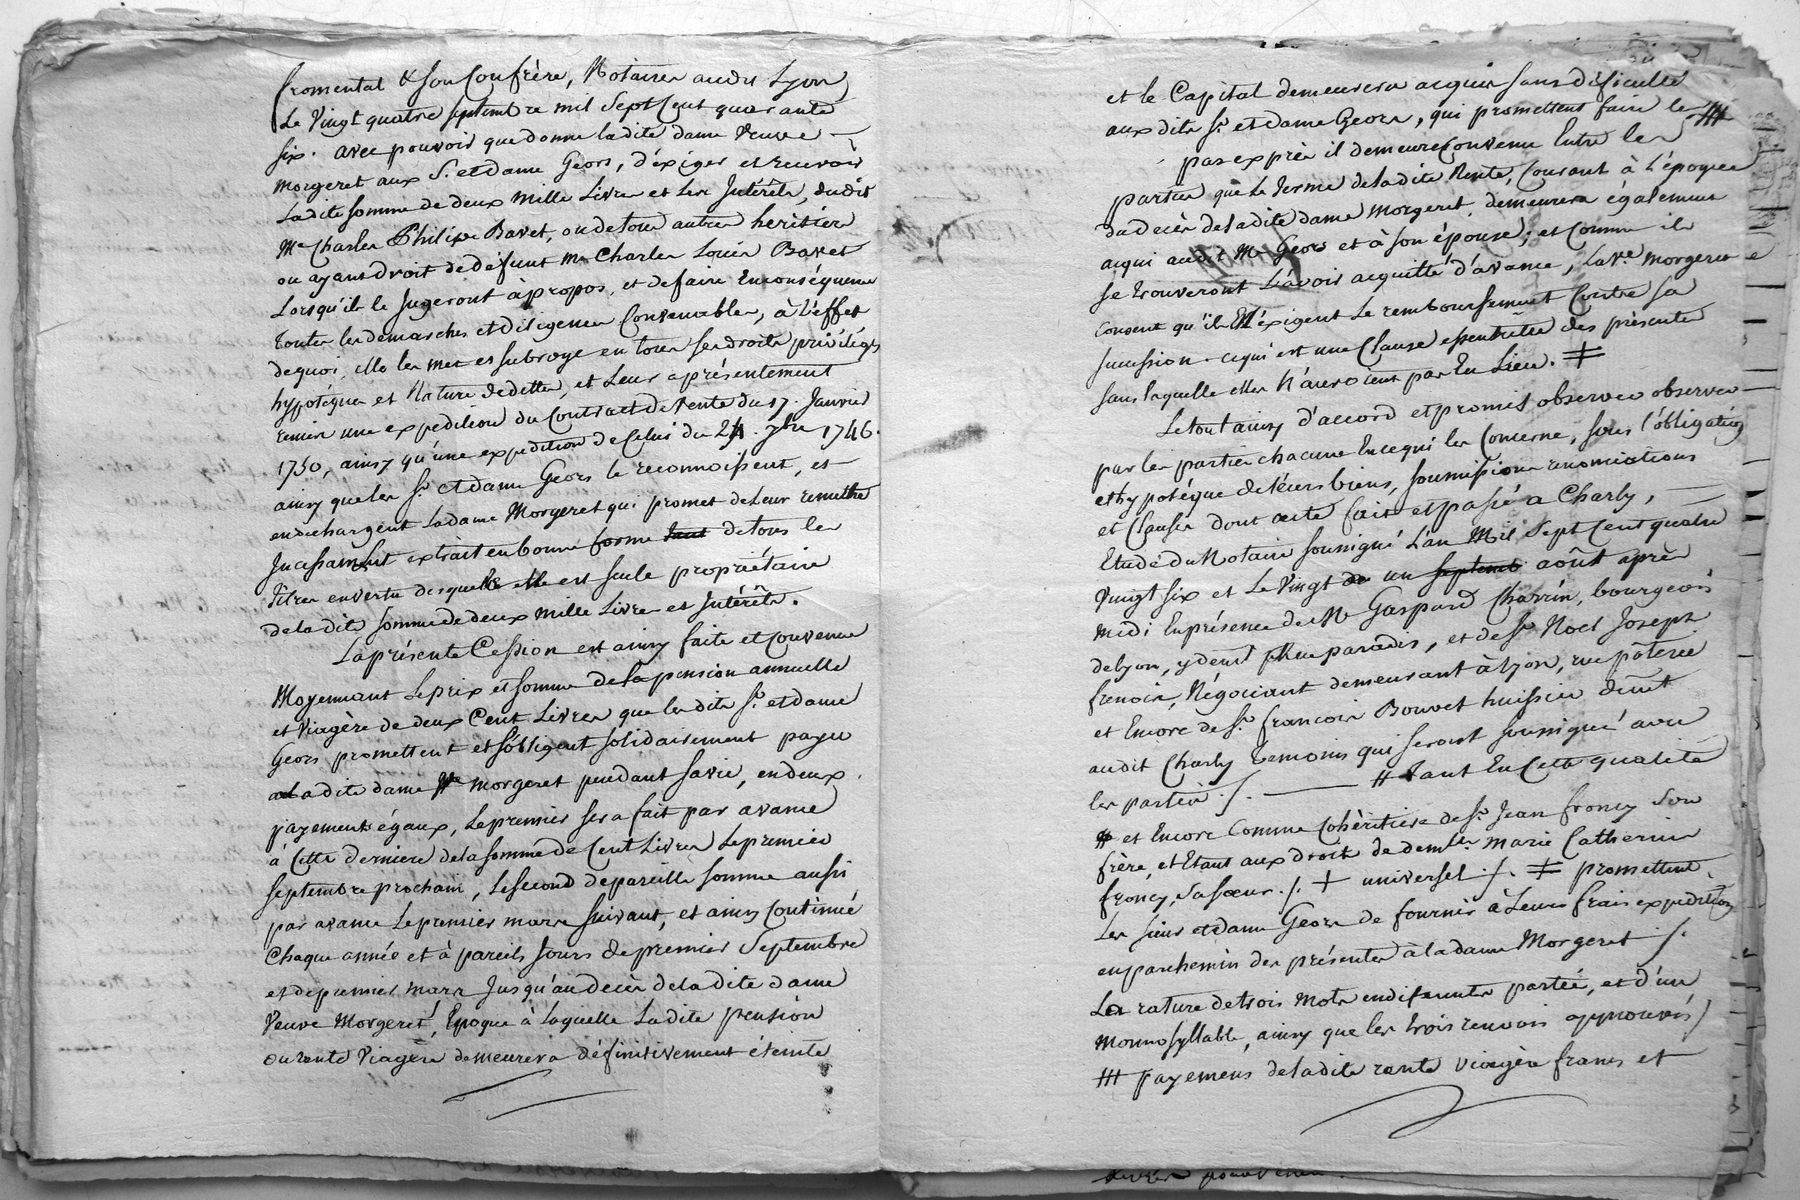 fromental & son Confrère, Notaires audit Lyon
Le Vingt quatre septembre mil Sept Cent quarante
six. avec pouvoir que donne ladite dame Veuve
Morgeret aux S. et dame Geors, d'éxiger et recevoir
Ladite somme de deux mille Livres et les Intérêts, dudit
Me Charles Philipe Bavet, ou de tous autres heritiers
ou ayans droit de défunt me Charles Louis Bavet
Lorsqu'ils le Jugeront àpropos, et de faire En conséquence
toutes les demarches et diligences Convenables, à L'éffet
dequoi, elle les met et subroge en tous ses droits priviléges
hypotéques et Nature de dettes, et Leur a présentement
remis une expedition du Contract de Vente du 17. Janvier
1730, ainsy qu'une expedition de Celui du 24. 7bre 1746.
ainsy que les Sr. et dame Geors le reconnoissent, et
en déchargent Ladame Morgeret qui promet de Leur remettre
Incessament extrait en bonne forme de tous les
Titres en vertu desquels elle est seule propriétaire
de la dite somme de deux mille Livres et Intérêts.
La présente Cession est ainsy faite et convenue
Moyennant Le prix et somme de la pension annuelle
et Viagère de deux Cent Livres que les dits Sr. et dame
Geors promettent et s'obligent solidairement payer
a la dite dame Ve morgeret pendant sa vie, en deux
payements égaux, Le premier sera fait par avance
à Cette derniere de la somme de Cent Livres Le premier
septembre prochain, Le second de pareille somme aussi
par avance Le premier mars suivant, et ainsy Continué
Chaque année et à pareils Jours de premier Septembre
et de premier mars Jusqu'au decès de la dite dame
Veuve Morgeret, Epoque à laquelle Ladite pension
ou rente Viagère demeurera définitivement éteinte
et le Capital demeurera acquis sans dificulté
aux dits Sr. et dame Geors, qui promettent faire les #
par exprès il demeure Convenu Entre les
parties que Le terme de la dite Rente, Courant à l'époque
du decès de la dite dame Morgeret, demeurera également
acqui audit Mr Geors et à son épouse; et Comme ils
se trouveront L'avoir acquitté d'avance, La ve. Morgeret
Consent qu'ils En éxigent Le remboursement Contre sa
sucession. ce qui est une Clause essentielle des présentes
sans laquelle elles n'auroient pas Eu Lieu. ≠
Le tout ainsy d'accord et promis observer observer
par les parties chacune En ce qui les Concerne, sous l'obligation
et hypotéque de leurs biens, soumissions renonciations
et Clauses dont acte fait et passé a Charly,
Etude du Notaire soussigné L'an Mil Sept Cent quatre
Vingt six et Le Vingt un septemb août après
midi En présence de Mr Gaspard Charrin, bourgeois
de lyon, y demt place paradis, et de Sr. Noel Joseph
frenois, Négociant demeurant à Lyon, rue poterie
et Encore de Sr. francois Bouvet huissier demt
audit Charly temoins qui seront soussigné avec
les parties ./. # tant En Cette qualité
# et Encore Comme Cohéritière de Sr. Jean froncy Son
frère, et Etant aux droits de demlle marie Catherine
froncy, sa soeur ./. + universel ./. ≠ promettent
Les Sieur et dame Geors de fournir à Leurs frais expedition
en parchemin des présentes à la dame Morgeret ./.
La rature de trois mots en diferentes parties, et d'un
monnosyllable, ainsy que les trois renvois approuvés /
# payemens de la dite rente viagère francs et